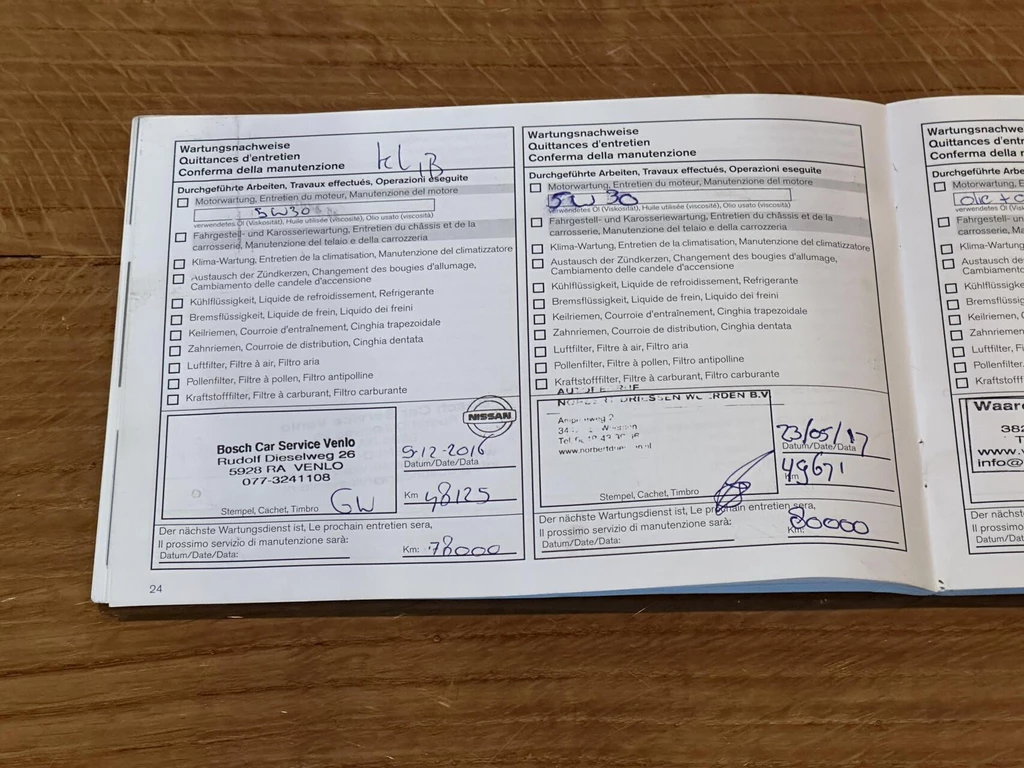 Wartungsnachweise
Quittances d'entretien
Conferma della manutenzione
Durchgeführte Arbeiten, Travaux effectués, Operazioni eseguite
Motorwartung, Entretien du moteur, Manutenzione del motore
5W30
verwendetes Öl (Viskosität), Huile utilisée (viscosité), Olio usato (viscosità)
Fahrgestell- und Karosseriewartung, Entretien du châssis et de la
carrosserie, Manutenzione del telaio e della carrozzeria
Klima-Wartung, Entretien de la climatisation, Manutenzione del climatizzatore
Austausch der Zündkerzen, Changement des bougies d'allumage,
Cambiamento delle candele d'accensione
Kühlflüssigkeit, Liquide de refroidissement, Refrigerante
Bremsflüssigkeit, Liquide de frein, Liquido dei freini
Keilriemen, Courroie d'entraînement, Cinghia trapezoidale
Zahnriemen, Courroie de distribution, Cinghia dentata
Luftfilter, Filtre à air, Filtro aria
Pollenfilter, Filtre à pollen, Filtro antipolline
Kraftstofffilter, Filtre à carburant, Filtro carburante
NISSAN
Bosch Car Service Venlo
Rudolf Dieselweg 26
5928 RA VENLO
077-3241108
GW
Stempel, Cachet, Timbro
9-12-2016
Datum/Date/Data
Km 48125
Der nächste Wartungsdienst ist, Le prochain entretien sera,
Il prossimo servizio di manutenzione sarà:
Datum/Date/Data:
Km: 78000
24
Wartungsnachweise
Quittances d'entretien
Conferma della manutenzione
Durchgeführte Arbeiten, Travaux effectués, Operazioni eseguite
Motorwartung, Entretien du moteur, Manutenzione del motore
5W30
verwendetes Öl (Viskosität), Huile utilisée (viscosité), Olio usato (viscosità)
Fahrgestell- und Karosseriewartung, Entretien du châssis et de la
carrosserie, Manutenzione del telaio e della carrozzeria
Klima-Wartung, Entretien de la climatisation, Manutenzione del climatizzatore
Austausch der Zündkerzen, Changement des bougies d'allumage,
Cambiamento delle candele d'accensione
Kühlflüssigkeit, Liquide de refroidissement, Refrigerante
Bremsflüssigkeit, Liquide de frein, Liquido dei freini
Keilriemen, Courroie d'entraînement, Cinghia trapezoidale
Zahnriemen, Courroie de distribution, Cinghia dentata
Luftfilter, Filtre à air, Filtro aria
Pollenfilter, Filtre à pollen, Filtro antipolline
Kraftstofffilter, Filtre à carburant, Filtro carburante
B.V
Stempel, Cachet, Timbro
23/05/17
Datum/Date/Data
49671
Km
Der nächste Wartungsdienst ist, Le prochain entretien sera,
Il prossimo servizio di manutenzione sarà:
Datum/Date/Data:
Km: 80000
Wartungsnachwe
Quittances d'entre
Conferma della
Durchgeführte Arbe
Motorwartung,
verwendetes Öl (Visko
Fahrgestell- und
carrosserie, Ma
Klima-Wartung
Austausch de
Cambiamento
Kühlflüssigke
Bremsflüssig
Keilriemen, C
Zahnriemen
Luftfilter, Fi
Pollenfilter
Kraftstofff
Waar
382
T
www.
info@
Stemp
Der nächst
Il prossimo
Datum/Dat